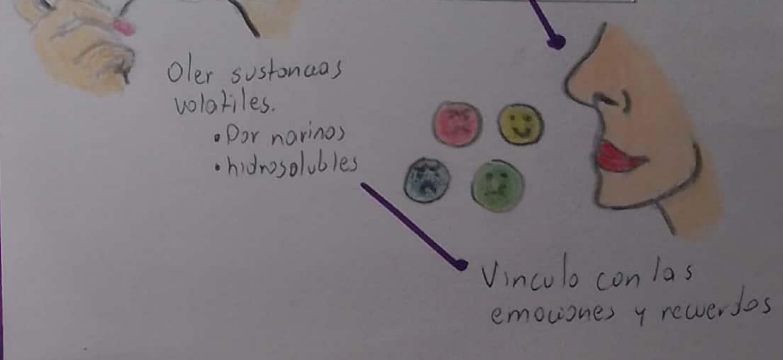 Oler sustancias
volatiles.
• Por narinas
• hidrosolubles
Vinculo con las
emociones y recuerdos